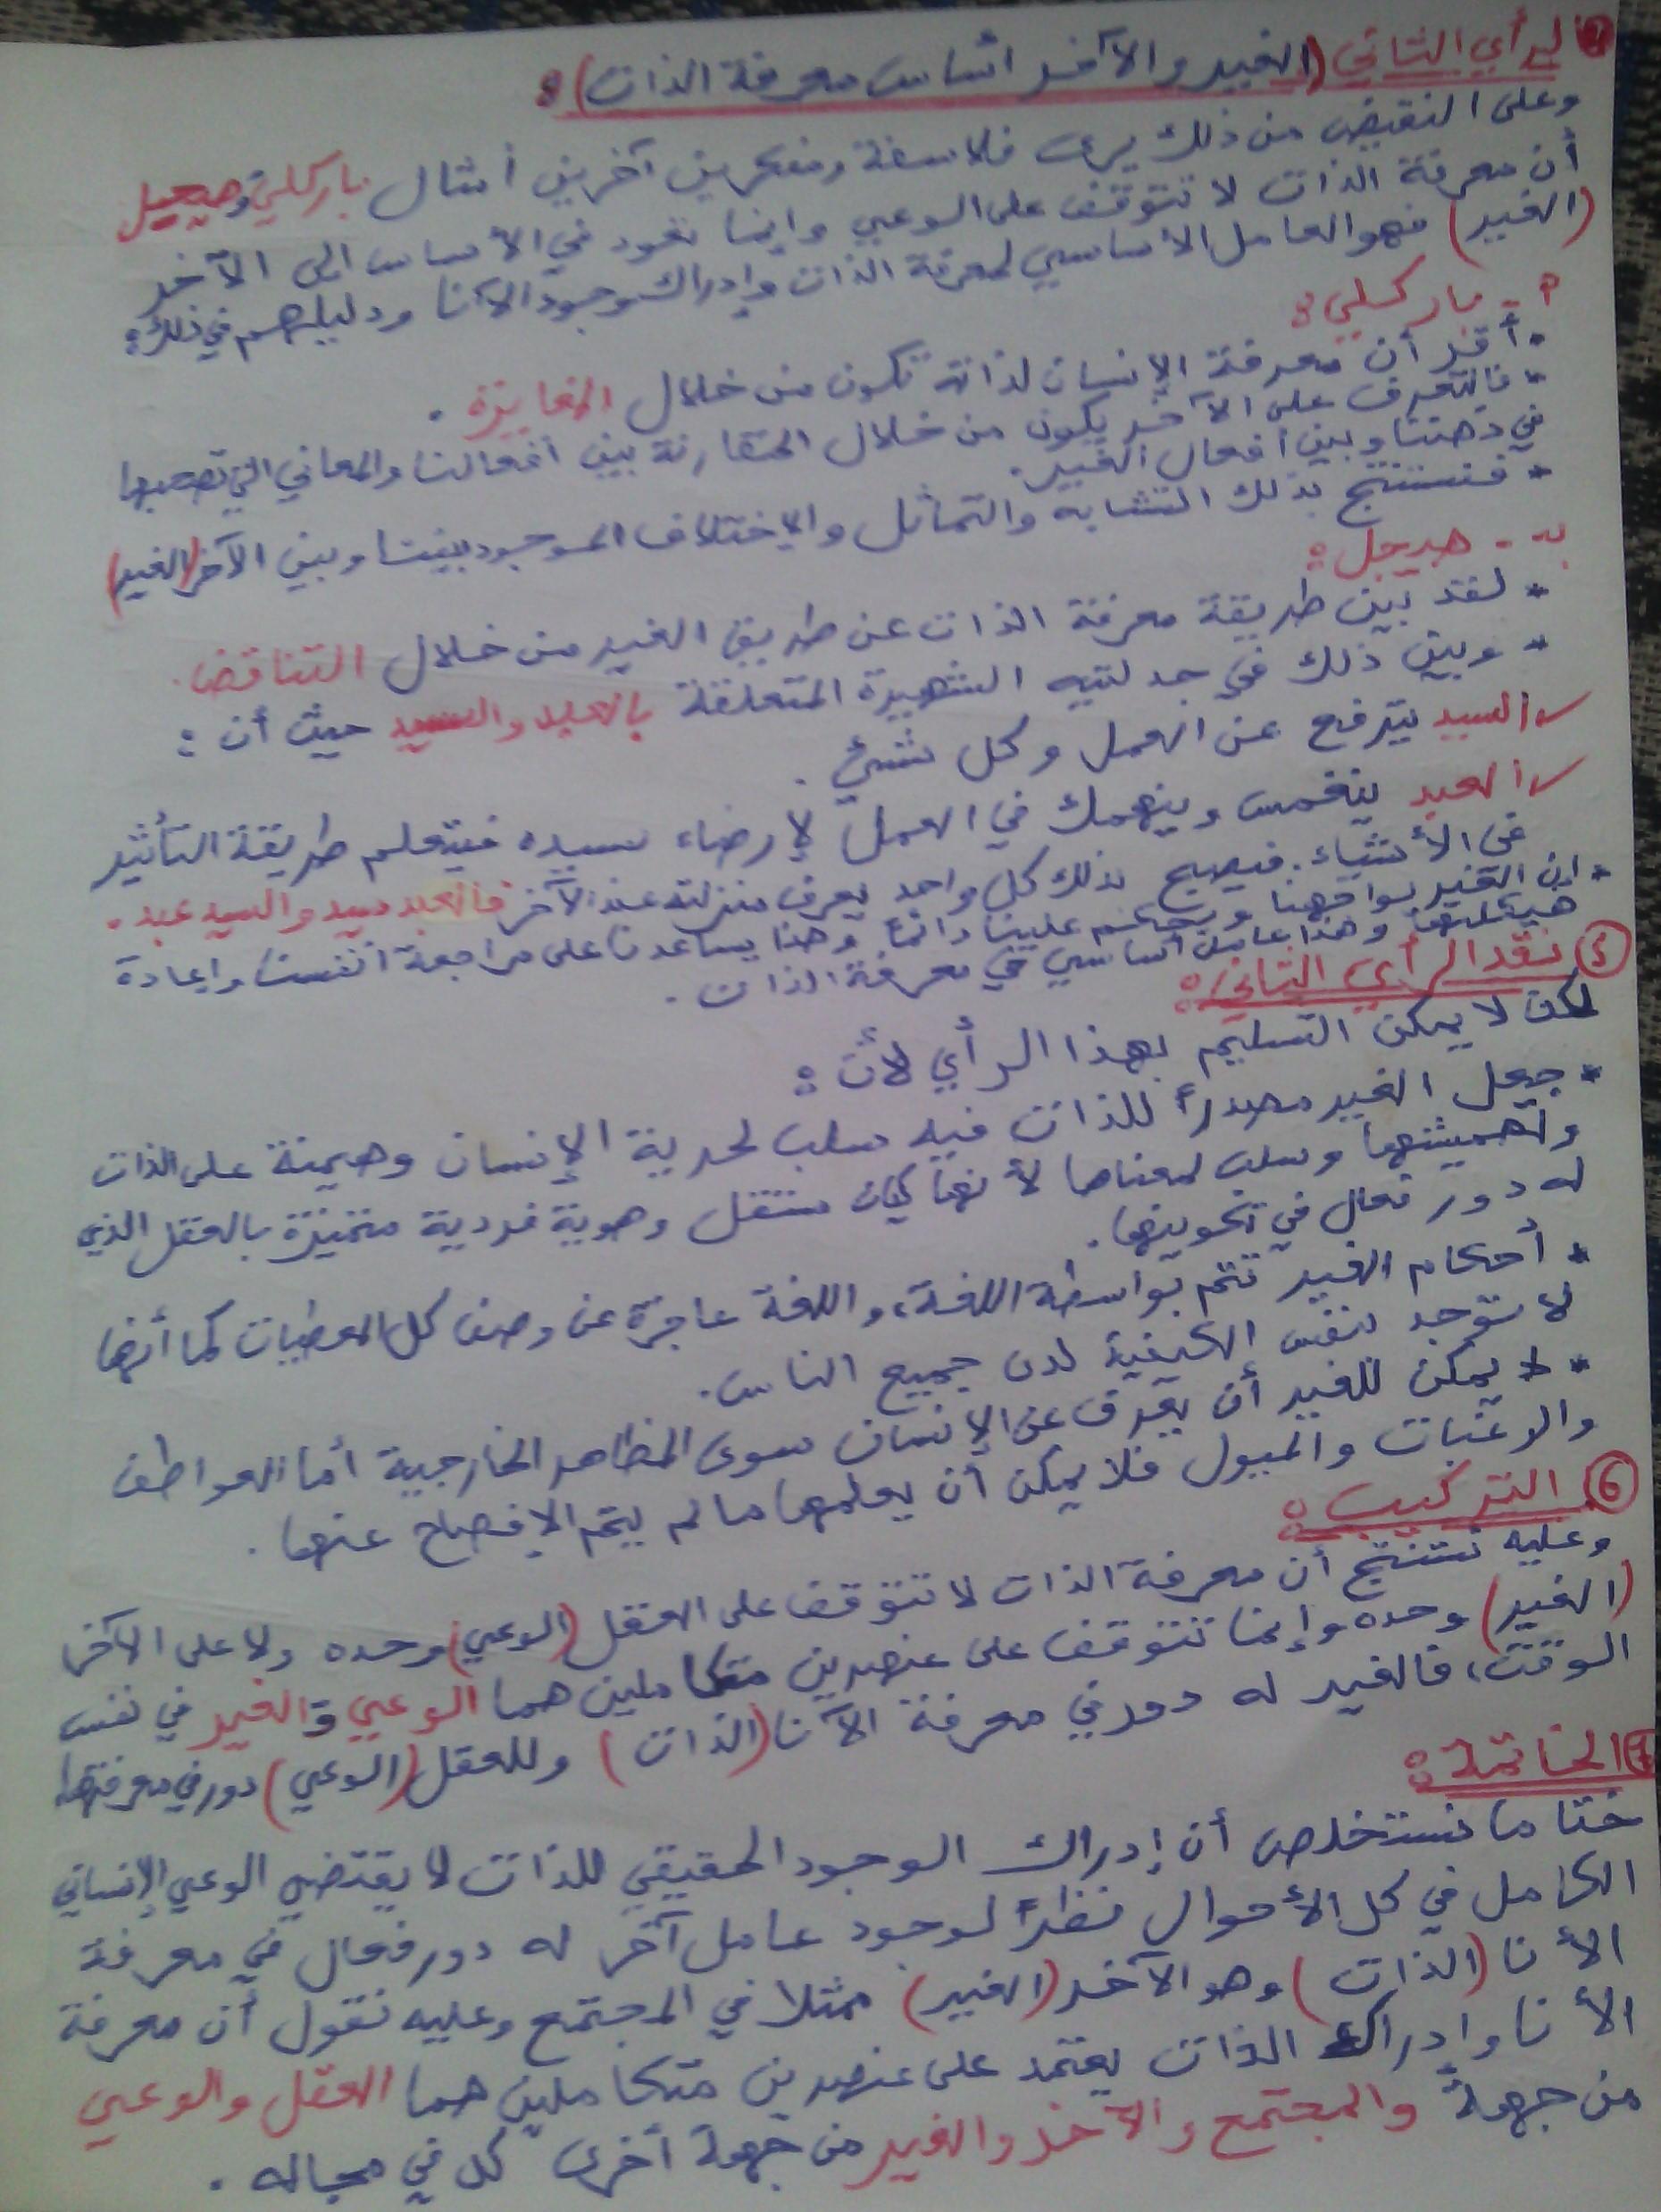 ④ الرأي الثاني (الغير والآخر أساس معرفة الذات):
وعلى النقيض من ذلك يرى فلاسفة ومفكرين آخرين أمثال باركلي وهيجل
أن معرفة الذات لا تتوقف على الوعي وإنما تعود في الأساس إلى الآخر
(الغير) فهو العامل الأساسي لمعرفة الذات وإدراك وجود الأنا ودليلهم في ذلك:
أ - باركلي:
• أقر أن معرفة الإنسان لذاته تكون من خلال المغايرة.
* فالتعرف على الآخر يكون من خلال المقارنة بين أفعالنا والمعاني التي تصحبها
في ذهننا وبين أفعال الغير.
* فنستنتج بذلك التشابه والتماثل والإختلاف الموجود بيننا وبين الآخر (الغير)
ب - هيجل:
* لقد بين طريقة معرفة الذات عن طريق الغير من خلال التناقض.
* وبين ذلك في جدليته الشهيرة المتعلقة بالعبد والسيد حيث أن:
✓ السيد يترفع عن العمل وكل شيء.
✓ العبد ينغمس وينهمك في العمل لإرضاء سيده فيتعلم طريقة التأثير
في الأشياء. فيصبح بذلك كل واحد يعرف منزلته عند الآخر فالعبد سيد والسيد عبد.
* إن الغير يواجهنا ويحكم علينا دائما وهذا يساعدنا على مراجعة أنفسنا وإعادة
هيكلتها وهذا عامل أساسي في معرفة الذات.
⑤ نقد الرأي الثاني:
لكن لا يمكن التسليم بهذا الرأي لأن:
* جعل الغير مصدرا للذات فيه سلب لحرية الإنسان وهيمنة على الذات
ولتهميشها وسلب لمعناها لأنها كيان مستقل وهوية فردية متميزة بالعقل الذي
له دور فعال في تكوينها.
* أحكام الغير تتم بواسطة اللغة، واللغة عاجزة عن وصف كل المعطيات كما أنها
لا توجد بنفس الكيفية لدى جميع الناس.
* لا يمكن للغير أن يعرف عن الإنسان سوى المظاهر الخارجية أما العواطف
والرغبات والميول فلا يمكن أن يعلمها ما لم يتم الإفصاح عنها.
⑥ التركيب:
وعليه نستنتج أن معرفة الذات لا تتوقف على العقل (الوعي) وحده ولا على الآخر
(الغير) وحده وإنما تتوقف على عنصرين متكاملين هما الوعي والغير في نفس
الوقت، فالغير له دور في معرفة الأنا (الذات) وللعقل (الوعي) دور في معرفتها
⑦ الخاتمة:
ختاما نستخلص أن إدراك الوجود الحقيقي للذات لا يقتضي الوعي الإنساني
الكامل في كل الأحوال نظرا لوجود عامل آخر له دور فعال في معرفة
الأنا (الذات) وهو الآخر (الغير) ممثلا في المجتمع وعليه نقول أن معرفة
الأنا وإدراك الذات يعتمد على عنصرين متكاملين هما العقل والوعي
من جهة والمجتمع والآخر والغير من جهة أخرى كل في مجاله.